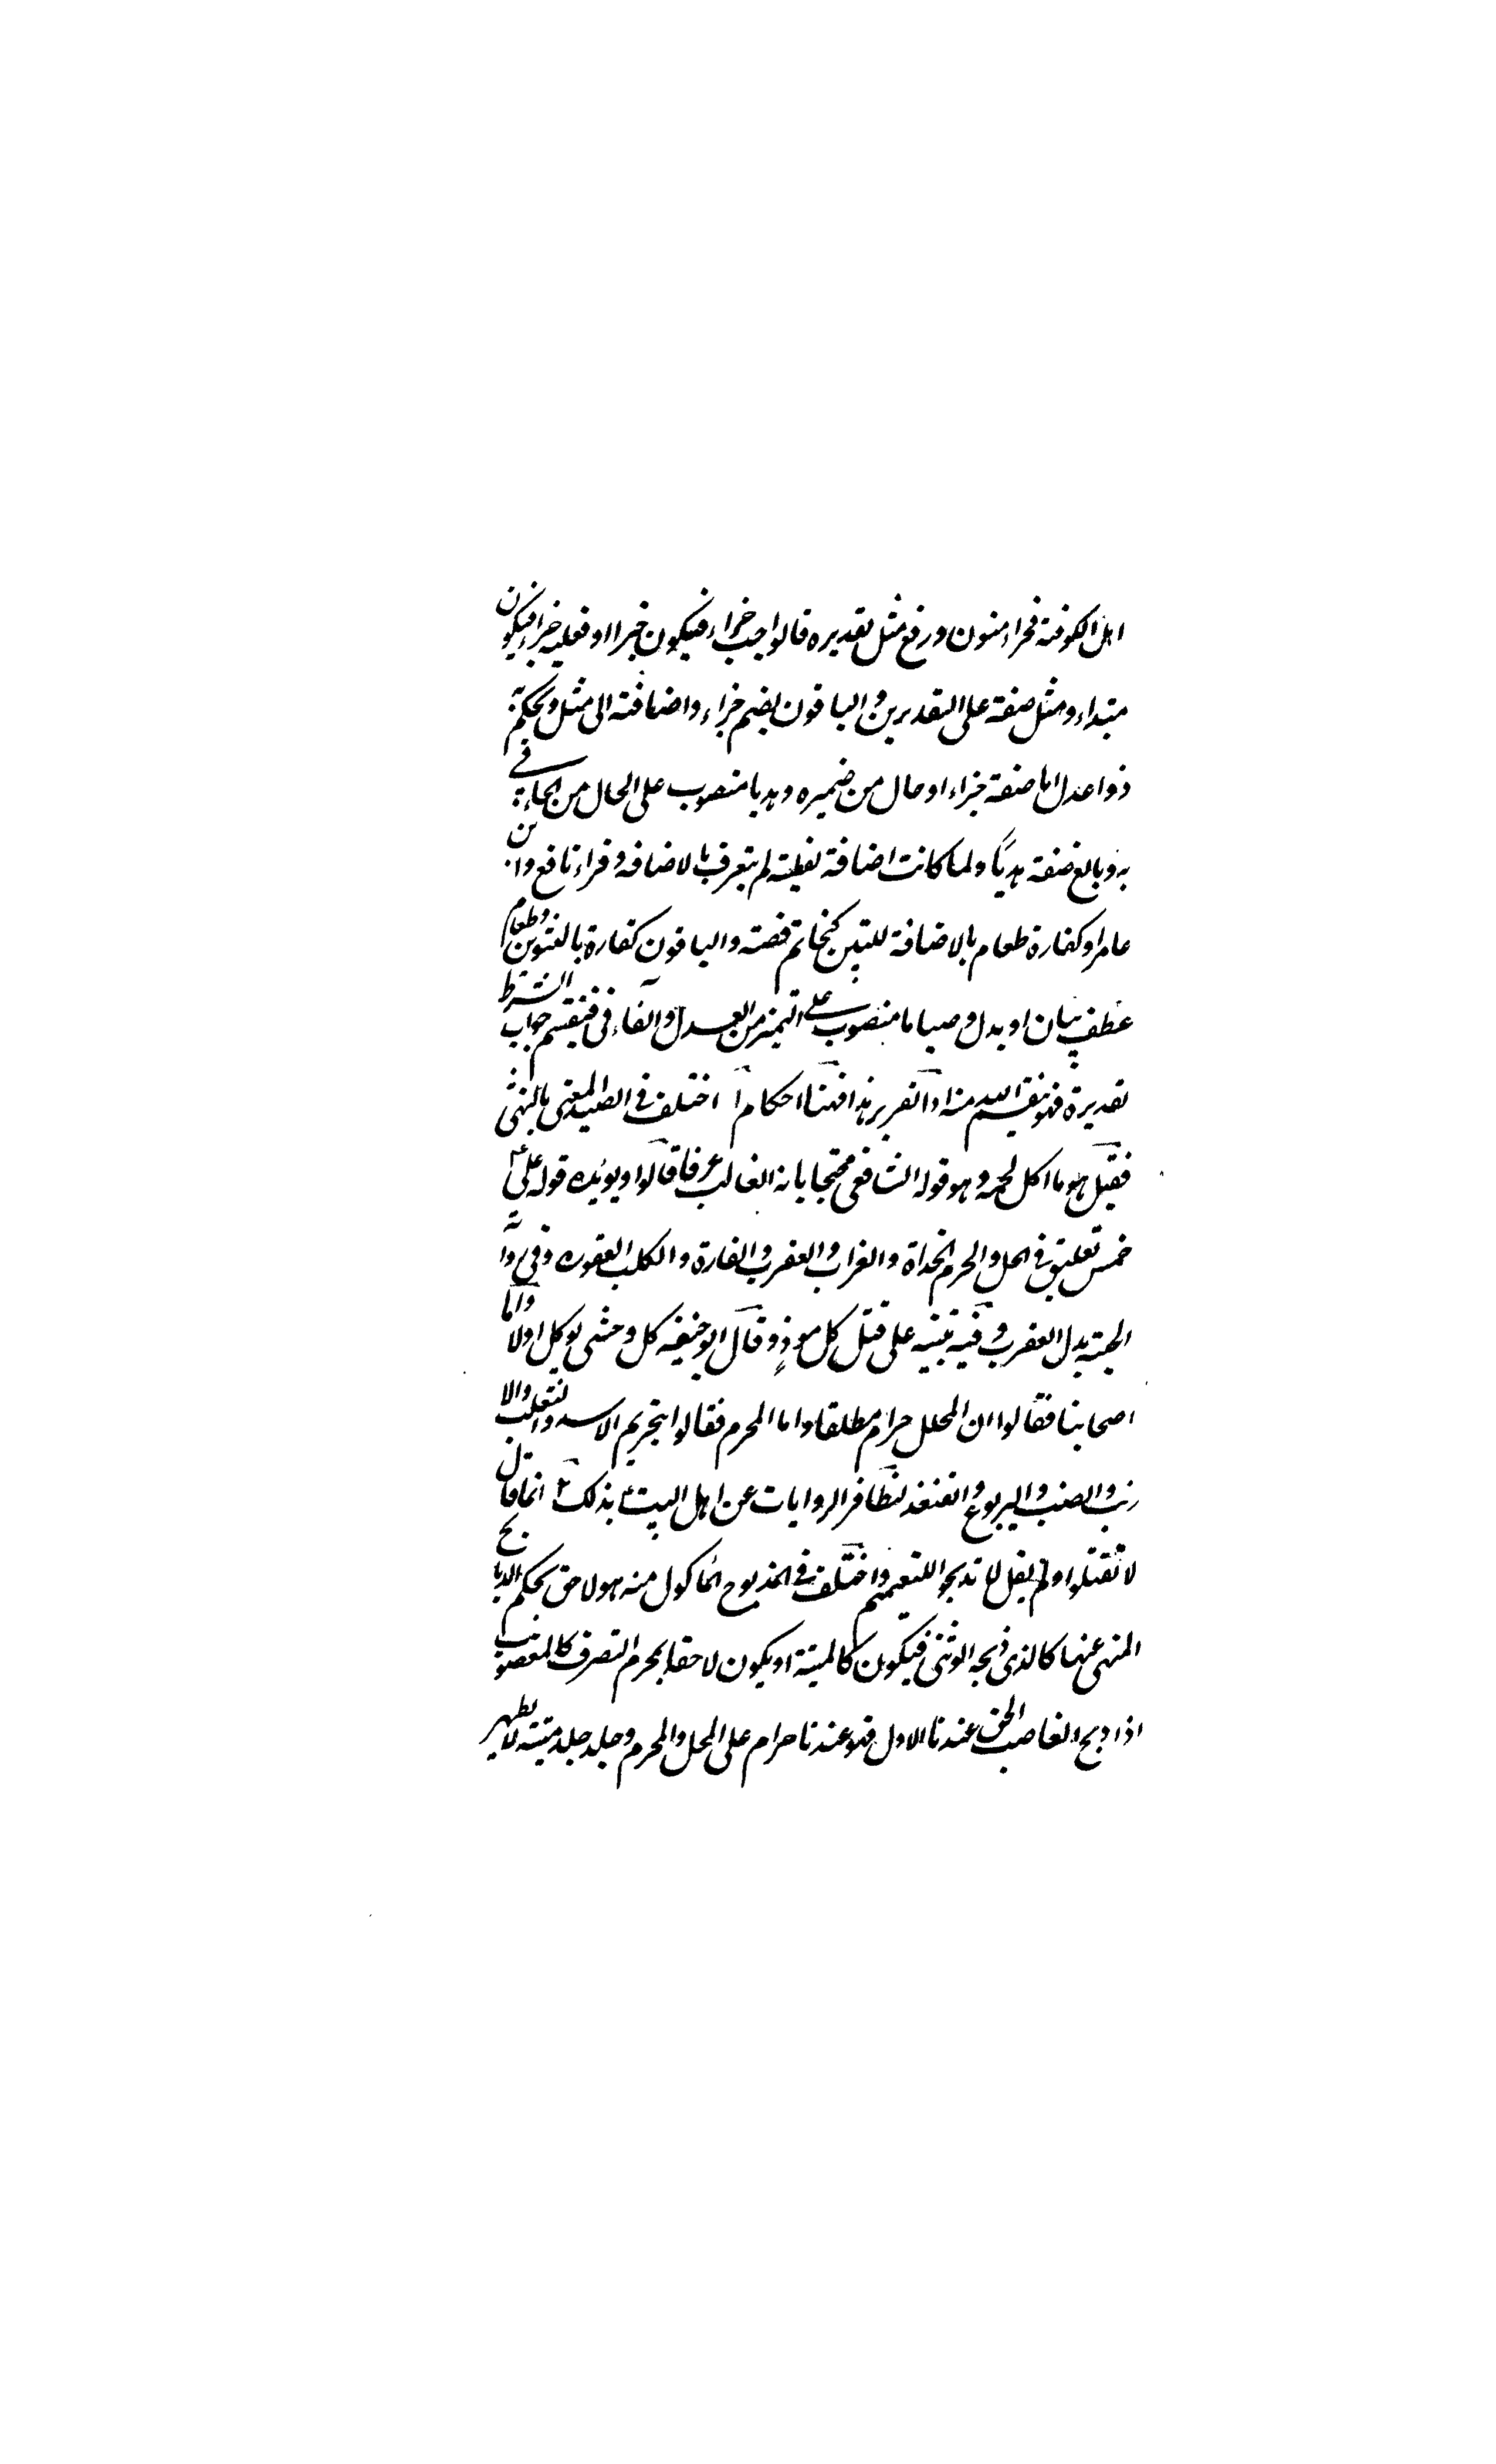 اهل الكوفة فجزاء منون ورفع مثل تقديره قالواجب جزاء فيكون خبرا او فعليه جزاء فيكون
مبتداء ومثل صفة على التقديرين والباقون بضم جزاء واضافته الى مثل ويحكم به
ذوا عدل اما صفة جزاء او حال من ضميره وهديا منصوب على الحال من الهاء في
به وبالغ صفة هديًا ولما كانت اضافة لفظية لم يتعرف بالاضافة وقراء نافع وابن
عامر او كفارة طعام بالاضافة للتبين كخاتم فضة والباقون كفارة بالتنوين وطعام
عطف بيان او بدل وصياما منصوب على التميز من العدل والفاء في فينتقم جواب الشرط
تقديره فهو ينتقم الله منه اذا تقرر هذا فهنا احكام آ اختلف في الصيد المعنى بالنهي
فقيل هو ما اكل لحمه وهو قول الشافعي محتجا بانه الغالب عرفا قالوا ويؤيده قوله علي
خمس تقتلن في الحل والحرم الحداة والغراب والعقرب والفارة والكلب العقور وفي رواية
الحية بدل العقرب وفيه تنبيه على قتل كل موذٍ وقال ابو حنيفة كل وحشي يوكل اولا واما
اصحابنا فقالوا ان المحلل حرام مطلقا واما المحرم فقالوا بتحريم الاسد والثعلب والا
رنب والضب واليربوع والقنفذ لتظافر الروايات عن اهل البيت ع بذلك ٢ انما قال
لا تقتلوا ولم يقل لا تذبحوا للتعميم واختلف في المذبوح الماكول منه هو لاحق بحكم الذبايح
المنهي عنها كالذي ذبحه الوثني فيكون كالميتة او يكون لاحقا بمحرم التصرف كالمغصوب
اذا ذبح الغاصب الحق عندنا الاول فهو عندنا حرام على المحل والمحرم وجلده جلد ميتة لا يطهر